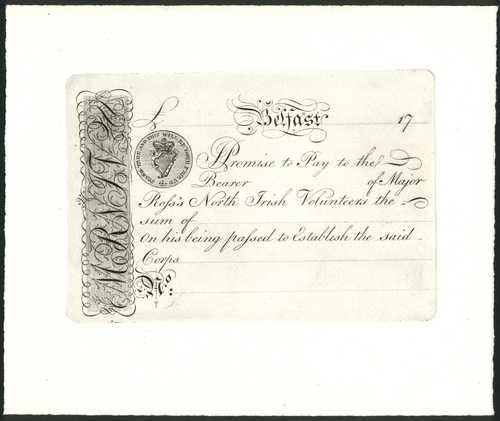 £ Belfast 17
I Promise to Pay to the
Bearer of Major
Ross's North Irish Volunteers the
sum of
On his being passed to Establish the said
Corps
No: